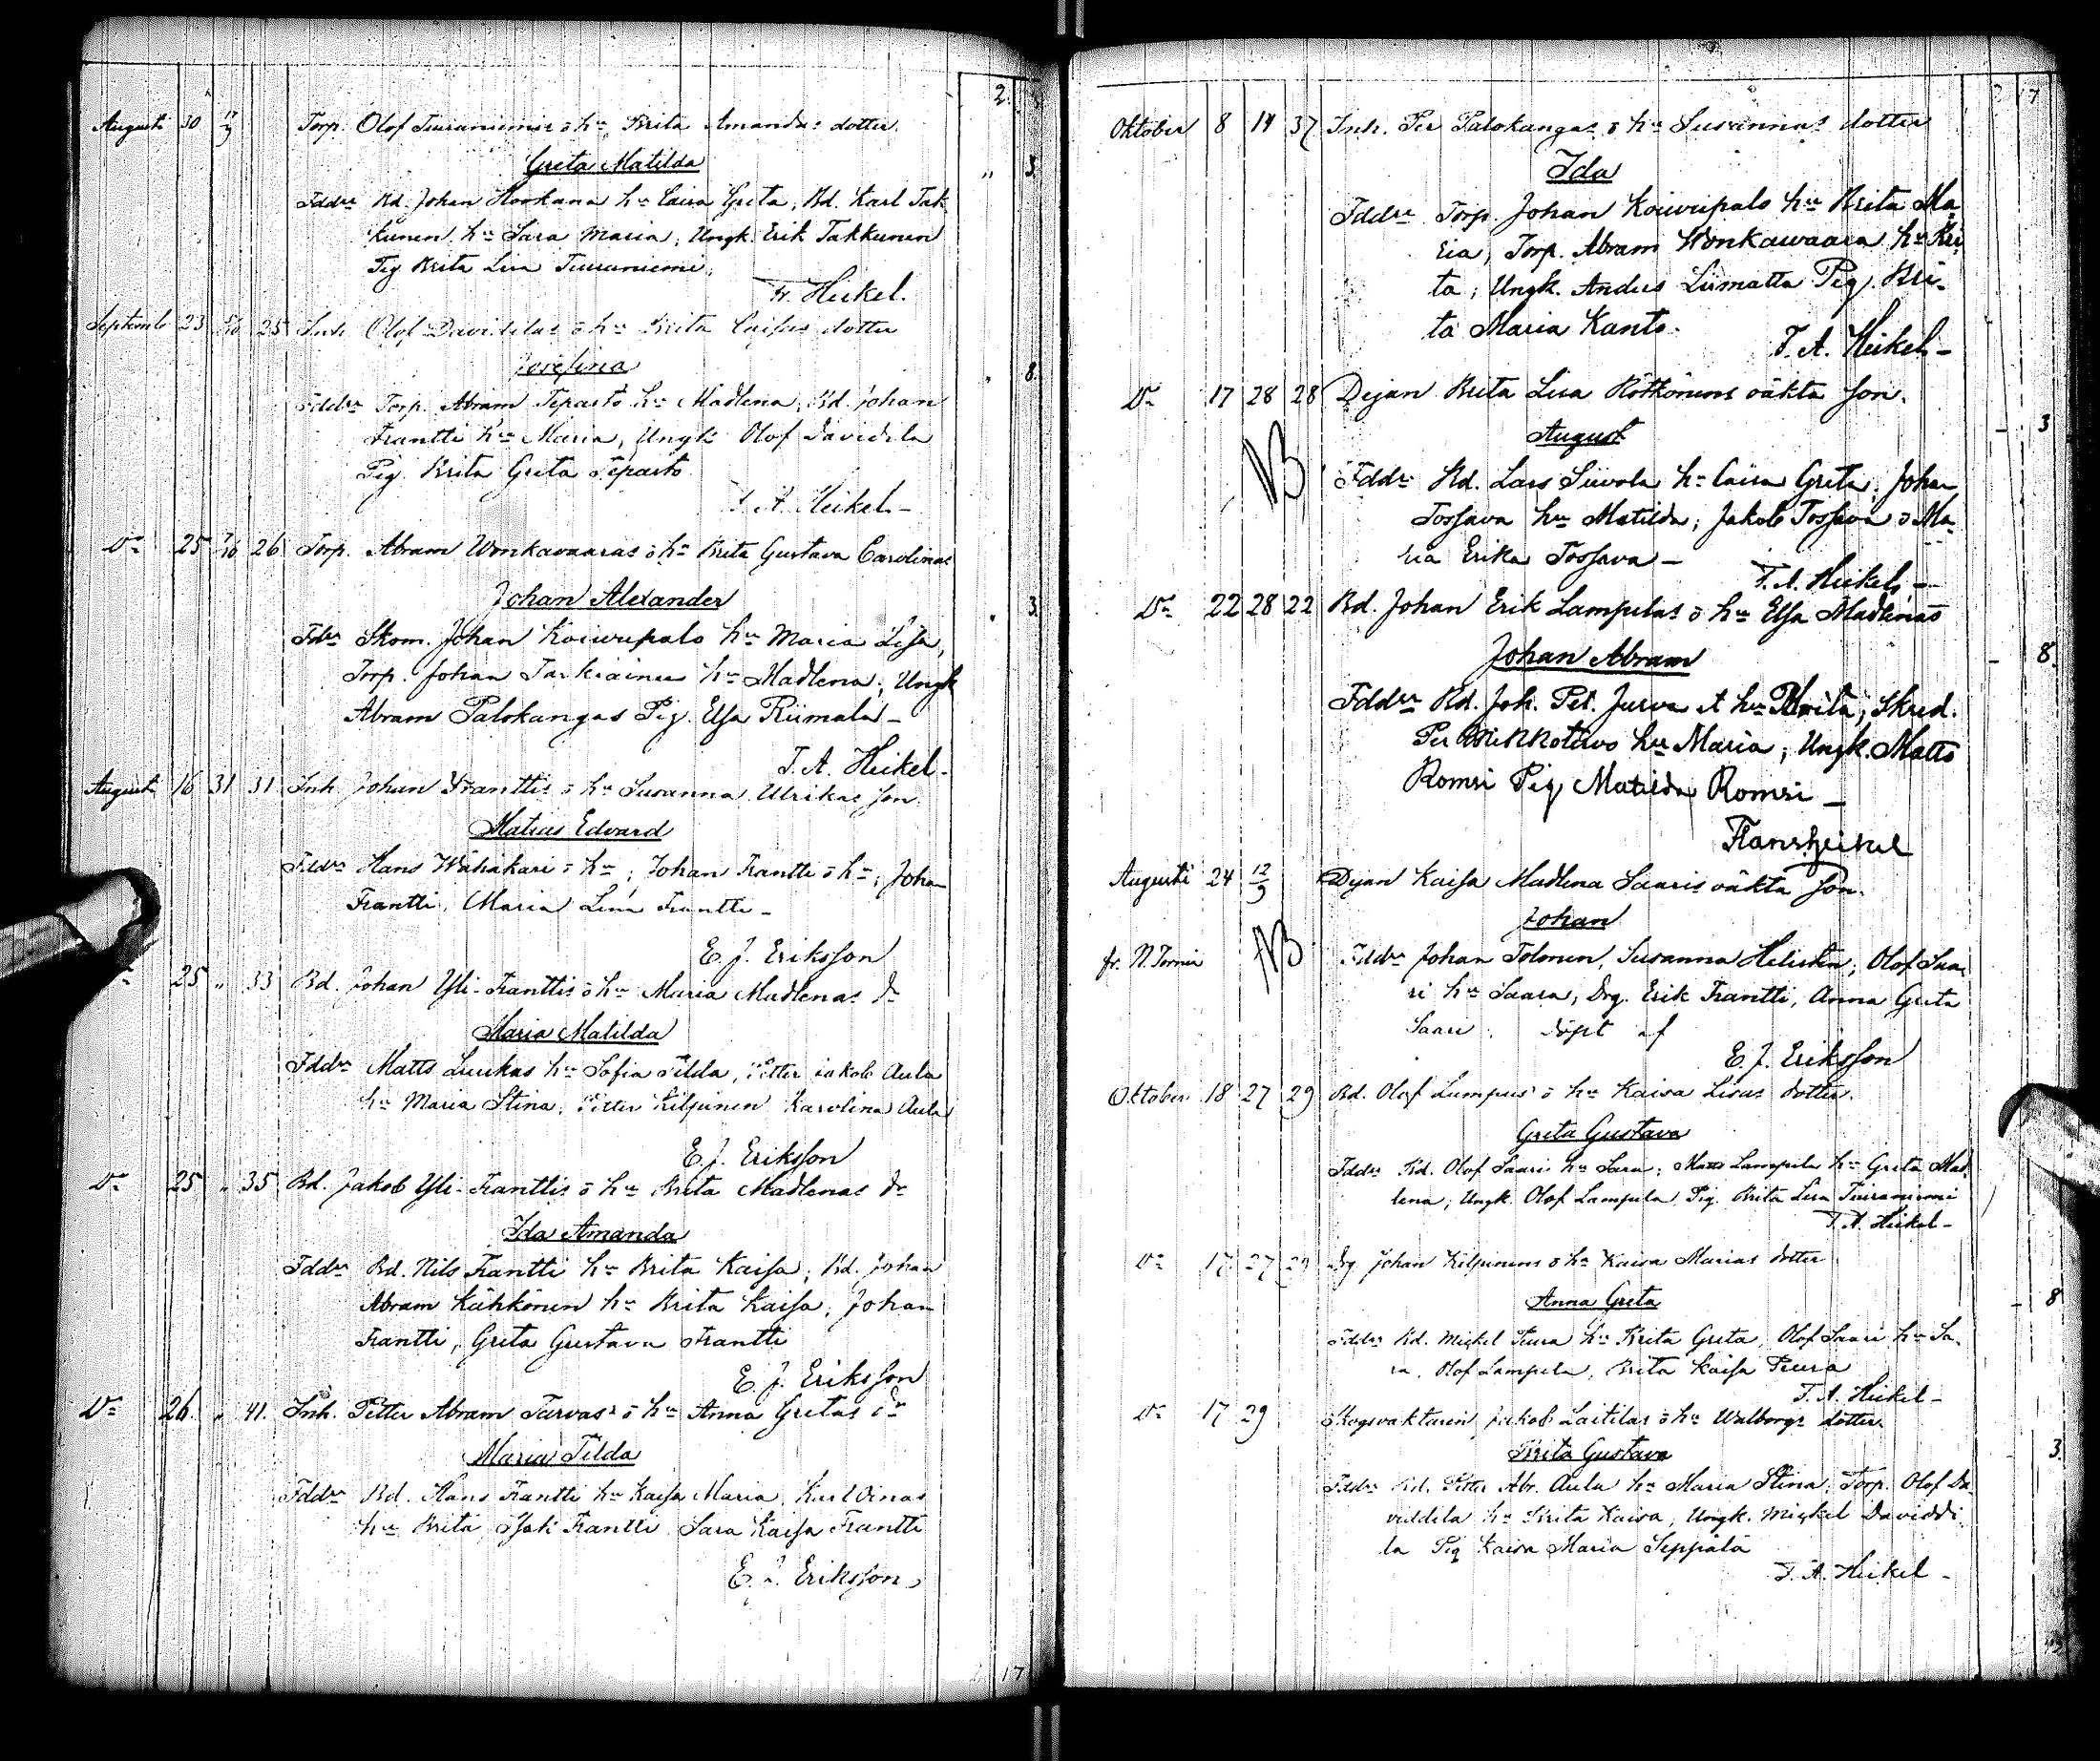 2.
Augusti 30 17/9 Torp. Olof Tuuraniemis ö hu Brita Amandas dotter
Greta Matilda
" 3.
Fddr Bd. Johan Honkana hu Caisa Greta; Bd. Karl Tak
kunen hu Sara Maria; Ungk. Erik Takkunen
Pig Brita Lisa Tuuraniemi.
Heikel.
Septemb 23 5/10 25 Inh. Olof Davidilas ö hu Brita Caisas dotter
Josefina
8.
Fddr Torp. Abram Tepasto hu Madlena, Bd. Johan
Frantti hu Maria, Ungk Olof Davidila
Pig. Brita Greta Tepasto
T. A. Heikel.-
Do 25 7/10 26 Torp. Abram Wonkavaaras ö hu Brita Gustava Carolinas
Johan Alexander
3.
Fdr Skom. Johan Koivupalo hu Maria Lisa,
Torp. Johan Tarkiainen hu Madlena; Ungk
Abram Palokangas Pig. Elsa Riimala -
T. A. Heikel.
Augusti 16 31 31 Inh. Johan Franttis ö hu Susanna Ulrikas son.
Matias Edvard
Fddr Hans Wähäkari ö hu; Johan Frantti ö hu; Johan
Frantti, Maria Lena Frantti -
E. J. Eriksson
25 " 33 Bd. Johan Yli-Franttis ö hu Maria Madlenas dr
Maria Matilda
Fddr Matts Luukas hu Sofia Tilda, Petter Jakob Aula
hu Maria Stina; Petter Kilpinen Karolina Aula
E. J. Eriksson
Do 25 " 35 Bd. Jakob Yli-Franttis ö hu Brita Madlenas dr
Ida Amanda
Fddr Bd. Nils Frantti hu Brita Kaisa; Bd. Johan
Abram Kähkönen hu Brita Kaisa; Johan
Frantti, Greta Gustava Frantti
E. J. Eriksson
Do 26. " 41. Inh. Petter Abram Tarvas ö hu Anna Gretas dr
Maria Tilda
Fddr Bd. Hans Frantti hu Kaisa Maria, Karl
hu Brita, Isak Frantti, Sara Kaisa Frantti
E. J. Eriksson
17
Oktober 8 14 37 Inh. Per Palokangas ö hu Susannas dotter
Ida
Fddr Torp. Johan Koivupalo hu Brita Ma
ria, Torp. Abram Wonkavaara hu Bri
ta; Ungk. Anders Liimatta Pig. Bri-
ta Maria Kanto.
T. A. Heikel -
Do 17 28 28 Dejan Brita Lisa Rötkönens oäkta son.
August
- 3
NB
Fddr Bd. Lars Siivola hu Caisa Greta; Johan
Tossava hu Matilda; Jakob Tossava ö Ma
ria Erika Tossava -
T. A. Heikel -
Do 22 28 22 Bd. Johan Erik Lampelas ö hu Elsa Madlenas
Johan Abram
- 8.
Fddr Bd. Joh. Pet. Jurva hu Brita; Skred.
Per hu Maria; Ungk. Matts
Romsi Pig Matilda Romsi -
Frans Heikel
Augusti 24 12/9 Dejan Kaisa Madlena Saaris oäkta son.
Johan
fr. N. Tornea NB Fddr Johan Tolonen, Susanna Helisten; Olof Saa
ri hu Saara; Drg. Erik Frantti, Anna Greta
Saari. döpt af
E. J. Eriksson
Oktober 18 27 29 Bd. Olof Lampus ö hu Kaisa Lisas dotter.
Greta Gustava
Fddr Bd. Olof Saari hu Sara; Matts Lampela hu Greta Mad
lena; Ungk. Olof Lampela Pig. Brita Lisa Tuiraniemi
T. A. Heikel -
Do 17 27 29 Drg Johan Kilpinens ö hu Kaisa Marias dotter
Anna Greta
- 8
Fddr Bd. Michel Teura hu Brita Greta, Olof Saari hu Sa-
ra, Olof Lampela, Brita Kaisa Teura
T. A. Heikel -
Do 17 29 Skogsvaktaren Jakob Laitilas ö hu Walborgs dotter
Brita Gustava
3.
Fddr Bd. Petter Abr. Aula hu Maria Stina; Torp. Olof Da
viddila hu Brita Kaisa, Ungk. Mickel Daviddi
la Pig Kaisa Maria Seppälä
T. A. Heikel -